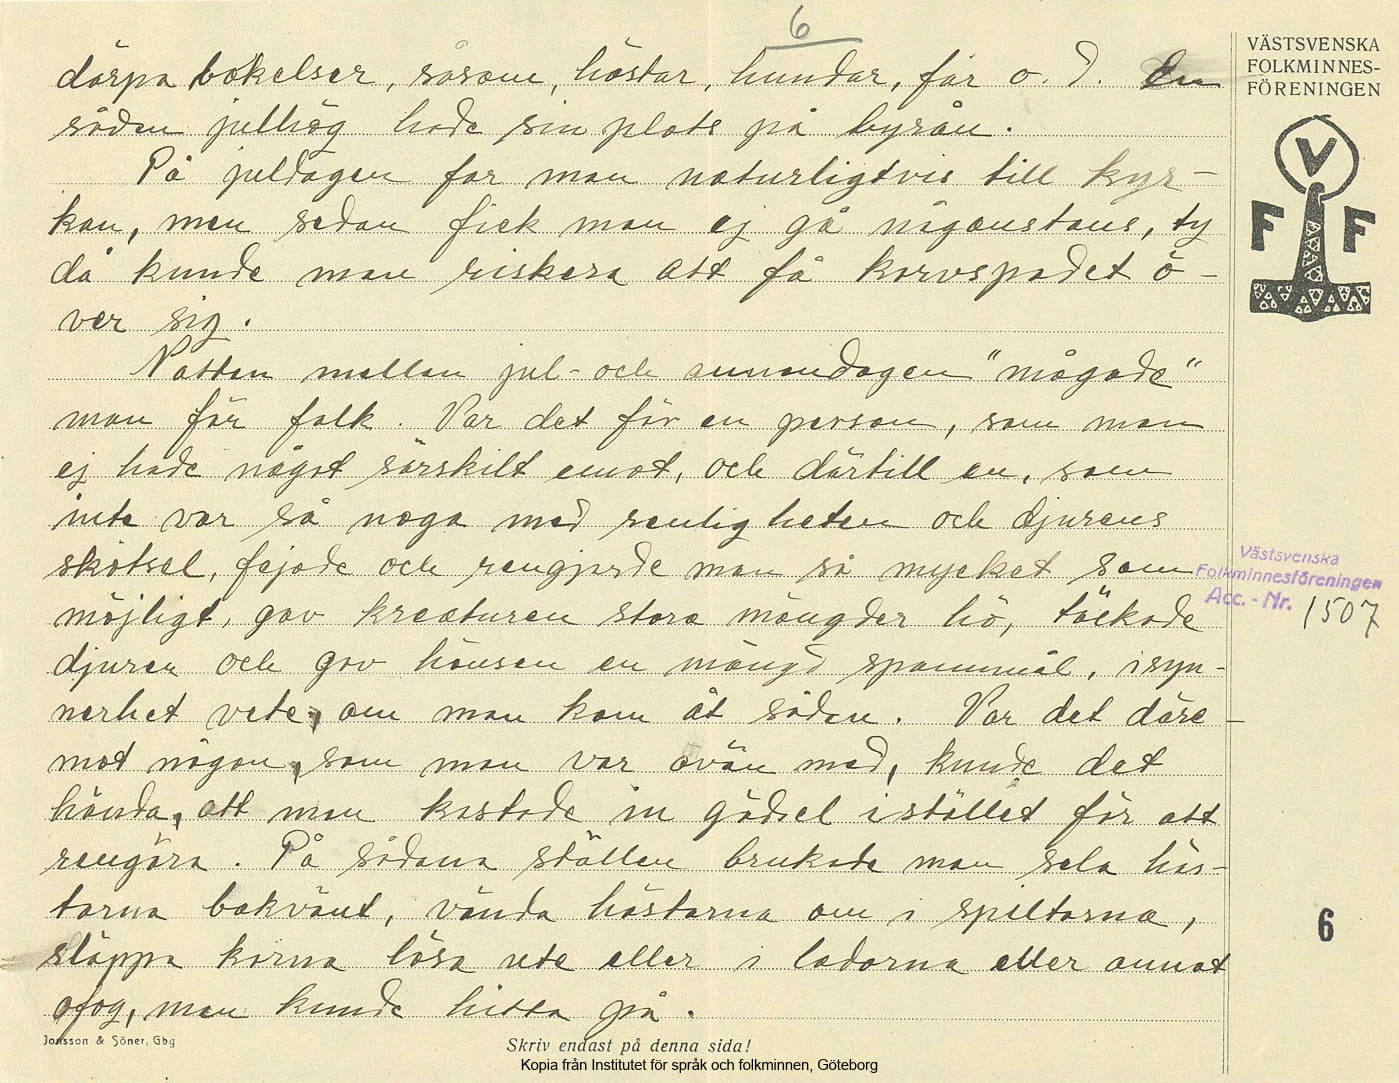 6
därpå bakelser, såsom, hästar, hundar, får o. d. En
sådan julhög hade sin plats på byrån.
På juldagen for man naturligtvis till kyr-
kan, men sedan fick man ej gå någonstans, ty
då kunde man riskera att få korvspadet ö-
ver sig.
Natten mellan jul- och annandagen "mågade"
man för folk. Var det för en person, som man
ej hade något särskilt emot, och därtill en, som
inte var så noga med renligheten och djurens
skötsel, fejade och rengjorde man så mycket som
möjligt, gav kreaturen stora mängder hö, täckade
djuren och gav hönsen en mängd spannmål, isyn-
nerhet vete, om man kom åt sådan. Var det däre-
mot någon, som man var ovän med, kunde det
hända, att man kastade in gödsel istället för att
rengöra. På sådana ställen brukade man sela häs-
tarna bakvänt, vända hästarna om i spiltorna,
släppa korna lösa ute eller i ladorna eller annat
ofog, man kunde hitta på.
VÄSTSVENSKA
FOLKMINNES-
FÖRENINGEN
V
F F
Västsvenska
Folkminnesföreningen
Acc. - Nr. 1507
6
Jonsson & Söner, Gbg
Skriv endast på denna sida!
Kopia från Institutet för språk och folkminnen, Göteborg